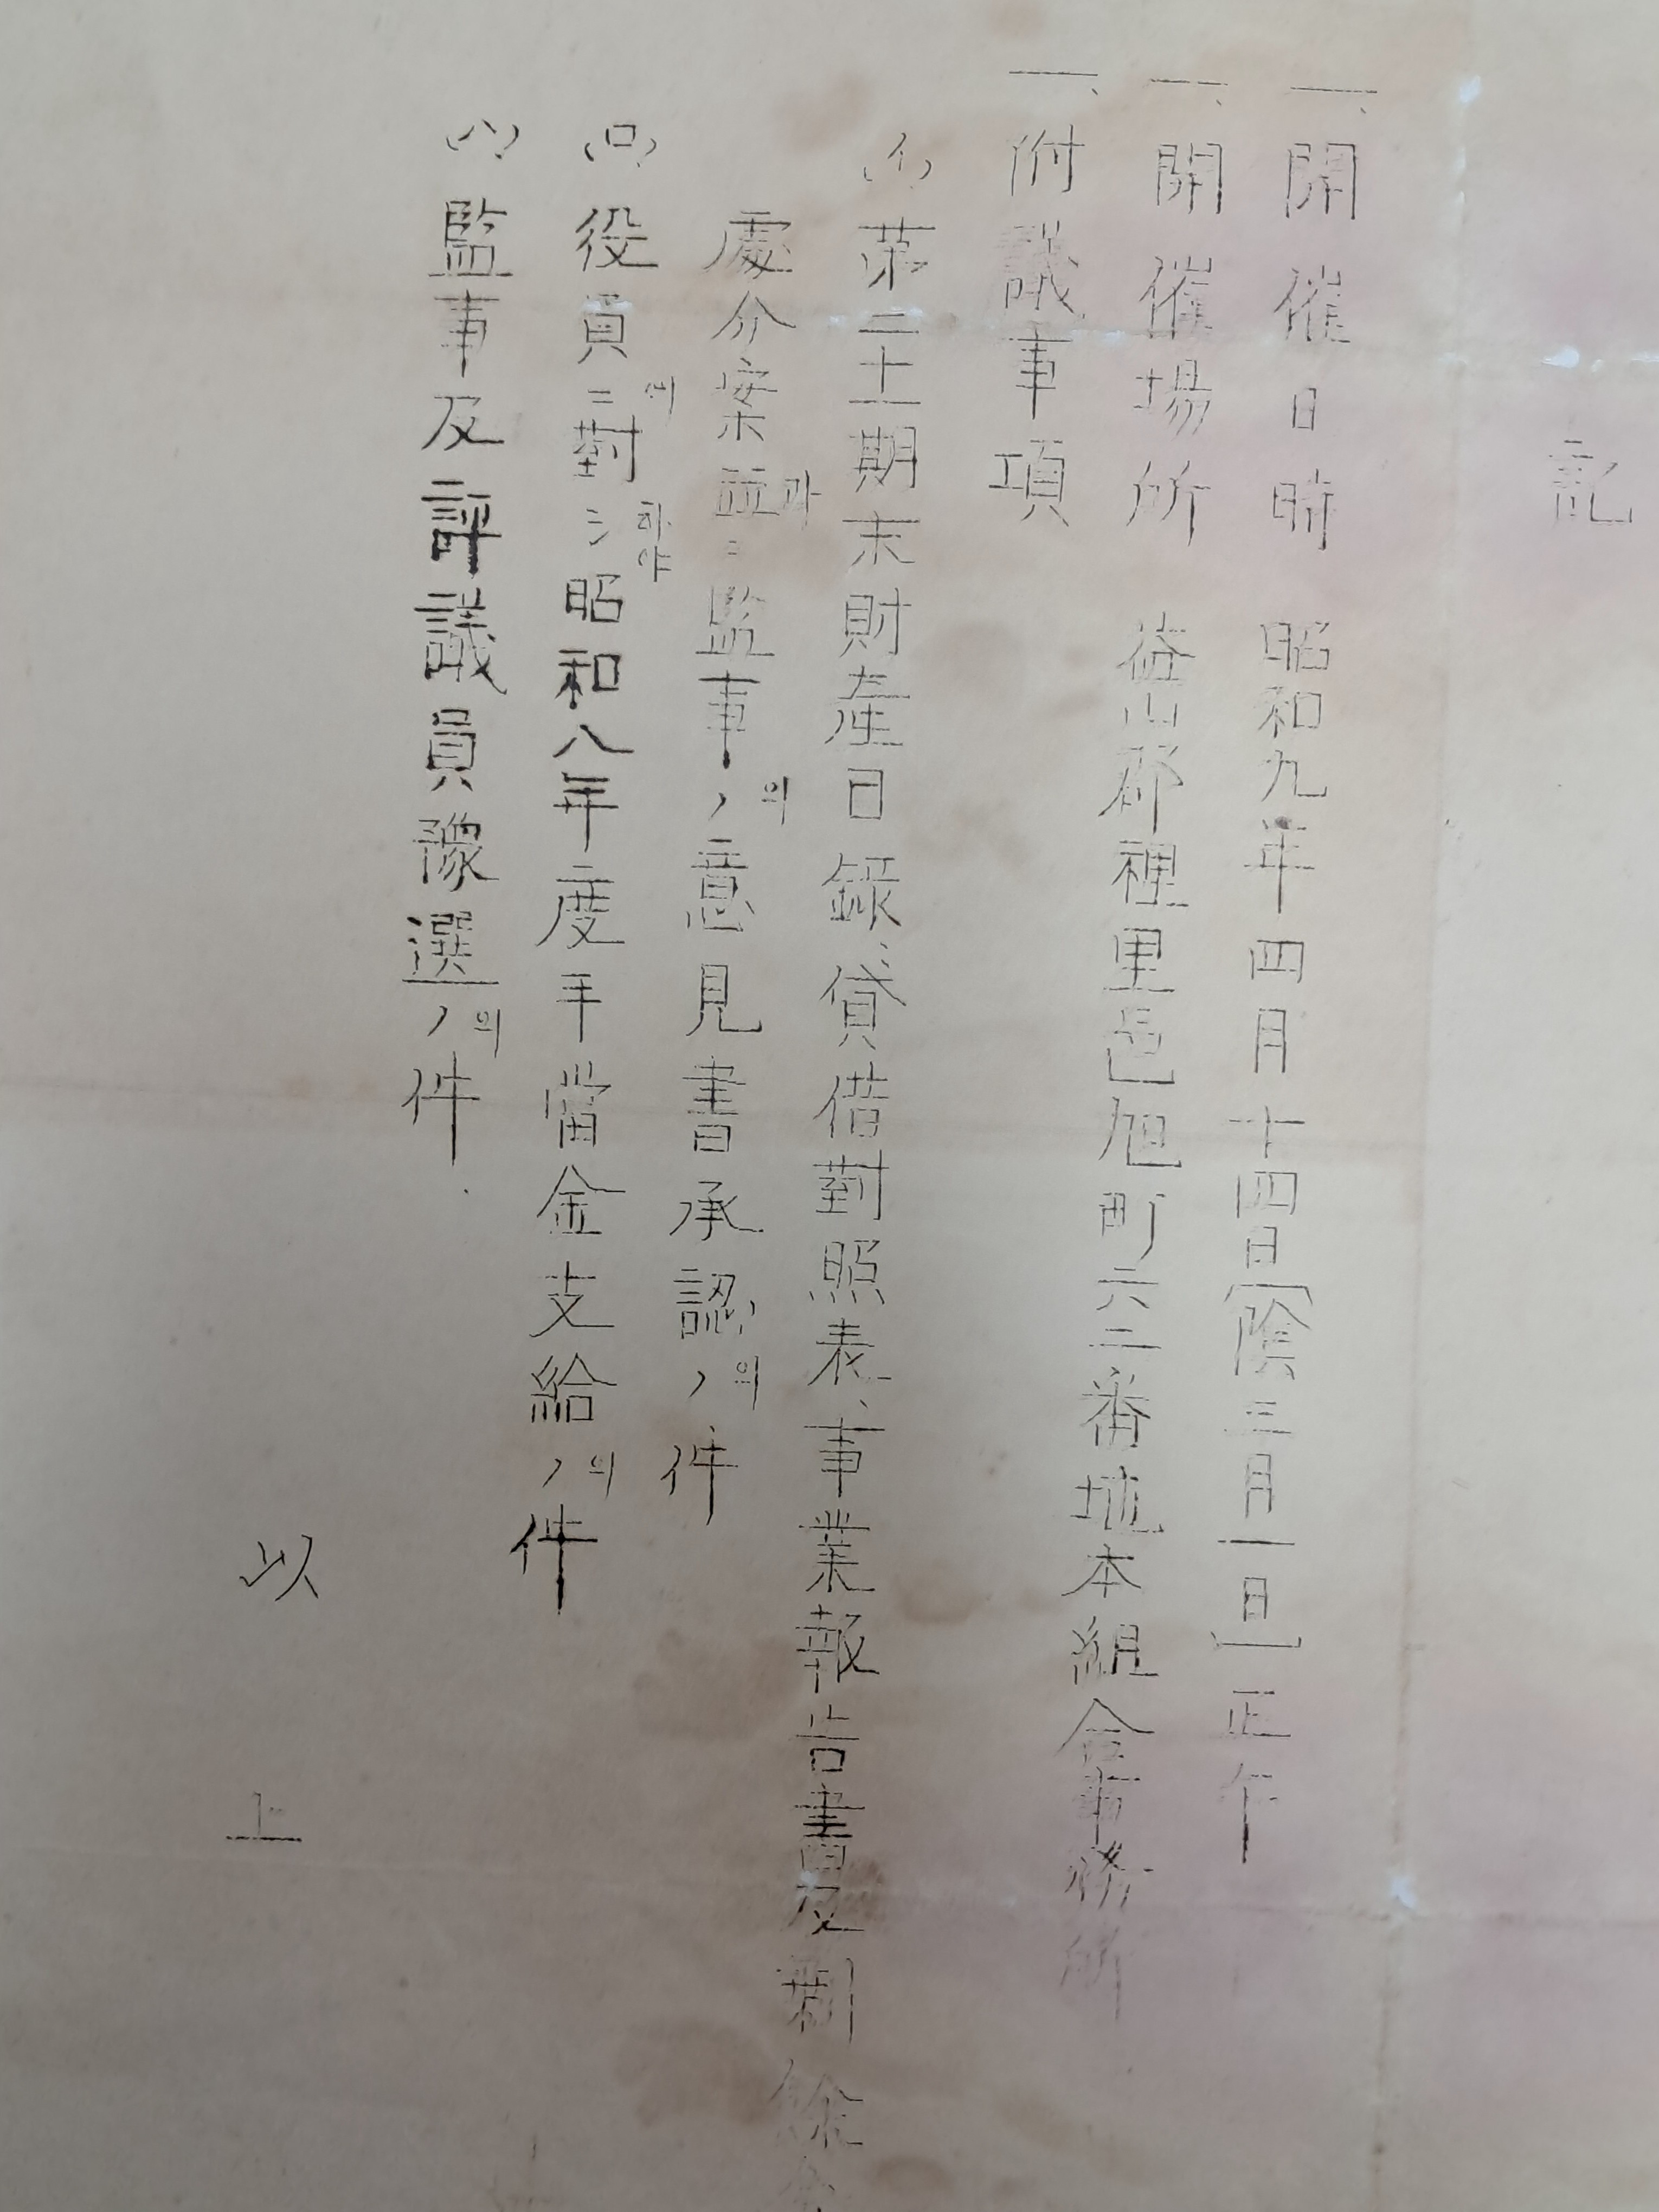 記
一、開催日時 昭和九年四月十四日(陰三月一日)正午
一、開催場所 益山郡裡里邑旭町六二番地本組合事務所
一、附議事項
(イ)第二十一期末財産目錄、貸借對照表、事業報告書及剩餘
處分案並ニ과監事ノ의意見書承認ノ의件
(ロ)役員ニ에對シ하야昭和八年度手當金支給ノ의件
(ハ)監事及評議員豫選ノ의件
以上